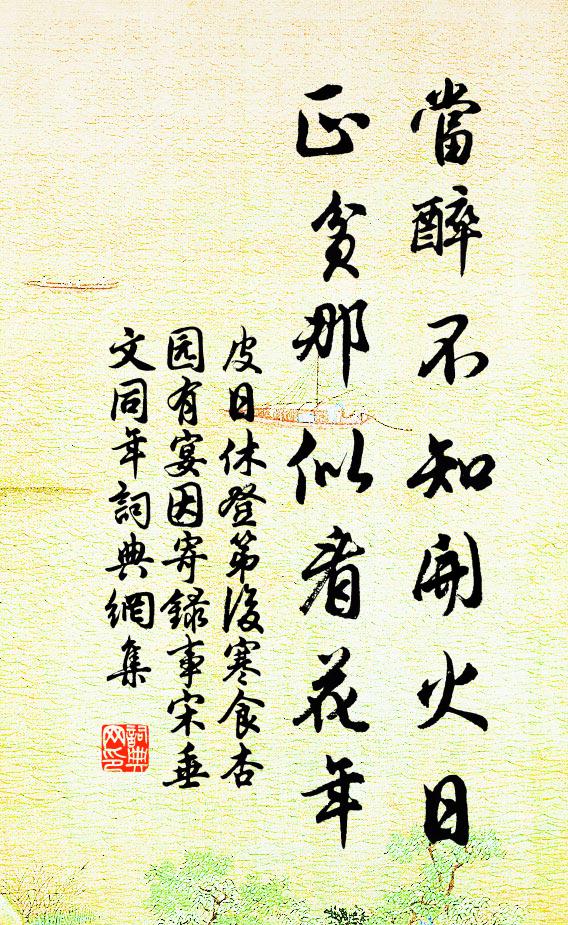 當醉不知開火日
正貧那似看花年
皮日休登第後寒食杏
园有宴因寄錄事宋垂
文同年詞典網集
詞典
网印